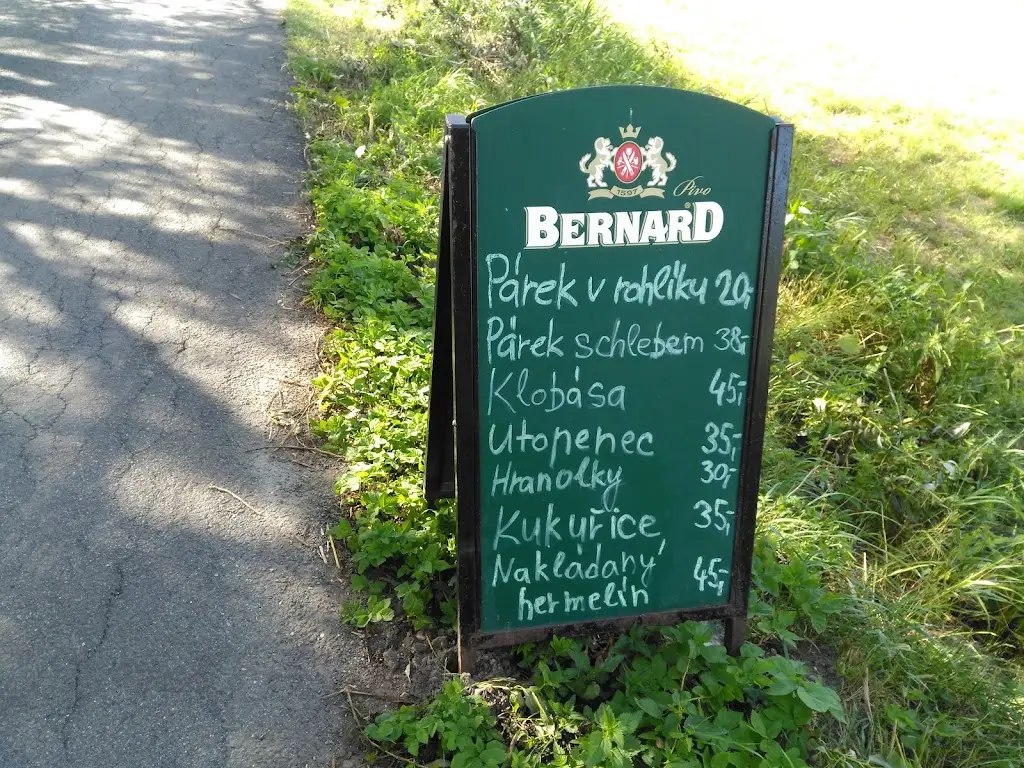 1597
Pivo
BERNARD
Párek v rohlíku 20,-
Párek schlebem 38,-
Klobása 45,-
Utopenec 35,-
Hranolky 30,-
Kukuřice 35,-
Nakládaný
hermelín 45,-